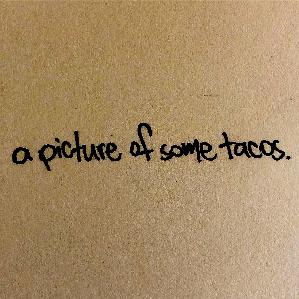 a picture of some tacos.